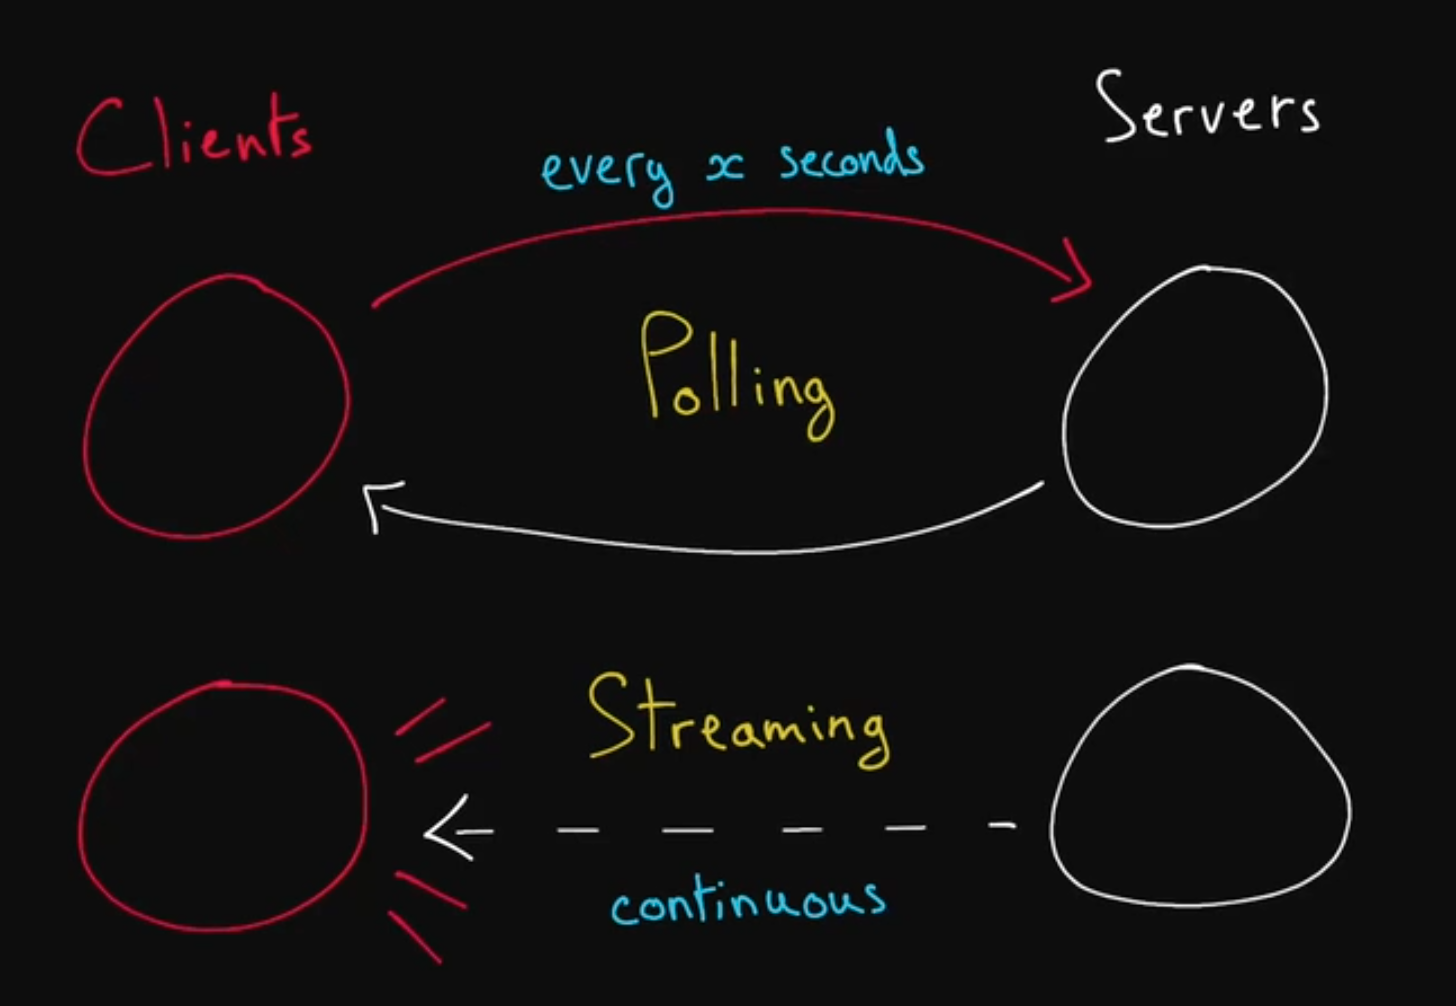 Clients
Servers
every x seconds
Polling
Streaming
continuous